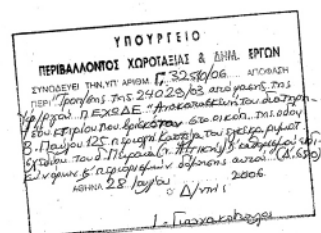 ΥΠΟΥΡΓΕΙΟ
ΠΕΡΙΒΑΛΛΟΝΤΟΣ ΧΩΡΟΤΑΞΙΑΣ & ΔΗΜ. ΕΡΓΩΝ
ΣΥΝΟΔΕΥΕΙ ΤΗΝ ΥΠ' ΑΡΙΘΜ. Γ 3250/06 ΑΠΟΦΑΣΗ
ΠΕΡΙ "Τροπ/σης της 24029/03 απόφασης της
Υφ/ργού ΠΕΧΩΔΕ "Αποκατάσταση του διατηρη-
του κτιρίου που βρίσκεται στο οικοπ. της οδού
Β. Παύλου 125 περιοχή Καστέλα του
σχεδίου του δ. Πειραιά (ν. Αττικής) & καθορισμός ειδι-
κών όρων & περιορισμών δόμησης αυτού" (Δ.650)
ΑΘΗΝΑ 28 2006
Ο Δ/ντής